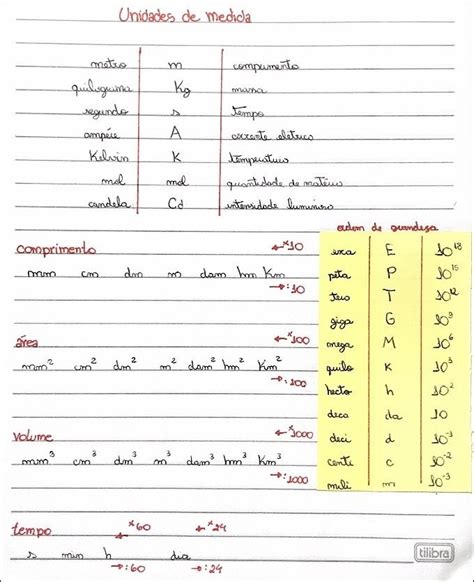 Unidades de medida
metro m comprimento
quilograma Kg massa
segundo s tempo
ampére A corrente elétrica
Kelvin K temperatura
mol mol quantidade de matéria
candela Cd intensidade luminosa
ordem de grandeza
exa E 10^18
peta P 10^15
tera T 10^12
giga G 10^9
mega M 10^6
quilo K 10^3
hecto h 10^2
deca da 10
deci d 10^-1
centi c 10^-2
mili m 10^-3
comprimento ← x10
mm cm dm m dam hm Km
→ :10
área ← x100
mm² cm² dm² m² dam² hm² Km²
→ :100
volume ← x1000
mm³ cm³ dm³ m³ dam³ hm³ Km³
→ :1000
tempo ← x60 ← x24
s min h dia
→ :60 → :24
tilibra